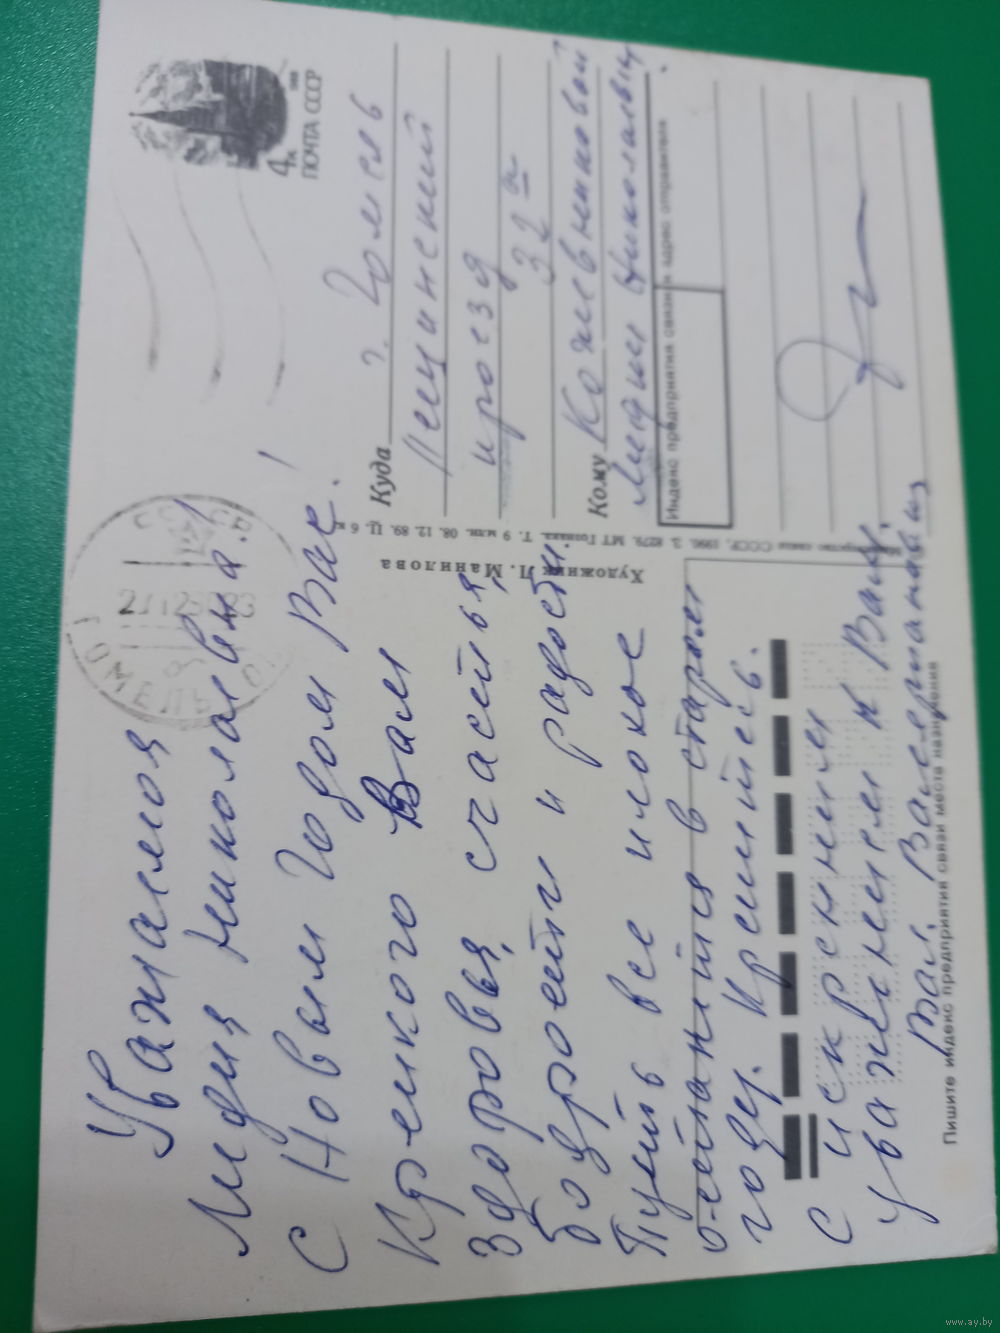 Уважаемая
Лидия Николаевна!
С Новым Годом Вас!
Крепкого Вам
здоровья, счастья,
бодрости и радости.
Пусть все плохое
останится в старом
году. Крепитесь.
С искренним
уважением к Вам.
Вал. Валерианович
4 к
ПОЧТА СССР
Куда
г. Гомель
проезд
32 а
Кому Кожевниковой
Лидии Николаевне
Индекс предприятия связи и адрес отправителя
Министерство связи СССР, 1990. З. 8279. МТ Гознака. Т. 9 млн. 08. 12. 89. Ц. 6 к.
Художник Л. Манилова
Пишите индекс предприятия связи места назначения
СССР
ГОМЕЛЬ
www.ay.by